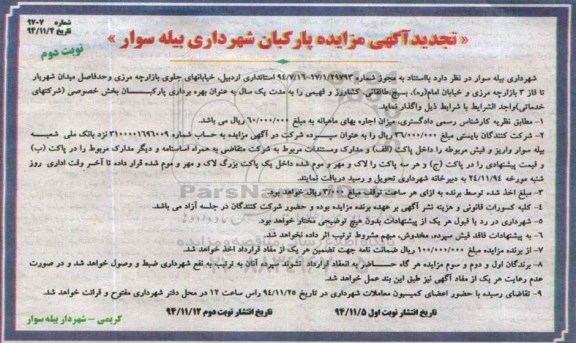 شماره ۹۷۰۷
تاریخ ۹۴/۱۱/۲
« تجدید آگهی مزایده پارکبان شهرداری بیله سوار »
نوبت دوم
شهرداری بیله سوار در نظر دارد باستناد به مجوز شماره ۲۷/۱۱/۲۹۷۹۳-۹۴/۷/۱۶ استانداری اردبیل، خیابانهای جلوی بازارچه مرزی وحدفاصل میدان شهریار
تا فاز ۳ بازارچه مرزی و خیابان امام(ره)، بسیج،طالقانی، کشاورز و فهیمی را به مدت یک سال به عنوان بهره برداری پارکبان بخش خصوصی (شرکتهای
خدماتی)واجد الشرایط با شرایط ذیل واگذار نماید.
۱- مطابق نظریه کارشناس رسمی دادگستری، میزان اجاره بهای ماهیانه به مبلغ ۶۰/۰۰۰/۰۰۰ ریال می باشد.
۲- شرکت کنندگان بایستی مبلغ ۳۶/۰۰۰/۰۰۰ ریال را به عنوان سپرده شرکت در آگهی مزایده به حساب شماره ۳۱۰۰۰۰۱۶۹۶۰۰۹ نزد بانک ملی شعبه
بیله سوار واریز و فیش مربوطه را داخل پاکت (الف) و مدارک ومستندات مربوط به شرکت متقاضی به همراه اساسنامه و دیگر مدارک مربوط را در پاکت (ب)
و قیمت پیشنهادی را در پاکت (ج) و هر سه پاکت را لاک و مهر و موم شده داخل یک پاکت بزرگ لاک و مهر و موم شده قرار داده تا آخر وقت اداری روز
شنبه مورخه ۲۴/۱۱/۹۴ به دبیرخانه شهرداری تحویل و رسید دریافت نمایند.
۳- مبلغ اخذ شده توسط برنده به ازای هر ساعت توقف مبلغ ۳۰۰۰ ریال خواهد بود.
۴- کلیه کسورات قانونی و هزینه نشر آگهی بر عهده برنده مزایده بوده و حضور شرکت کنندگان در جلسه آزاد می باشد.
۵- شهرداری در رد یا قبول هر یک از پیشنهادات بدون هیچ توضیحی مختار خواهد بود.
۶- به پیشنهادات فاقد فیش سپرده، مخدوش، مبهم مشروط ترتیب اثر داده نخواهد شد.
۷- از برنده مزایده مبلغ ۱۰۰/۰۰۰/۰۰۰ ریال ضمانت نامه جهت تضمین هر یک از مفاد قرارداد اخذ خواهد شد.
۸- برندگان اول و دوم و سوم مزایده هر گاه حاضر به انعقاد قرارداد نشوند سپرده آنان به ترتیب به نفع شهرداری ضبط و وصول خواهد شد و در صورت
عدم رعایت هر یک از مفاد آگهی نیز طبق این بند عمل خواهد شد.
۹- تقاضای رسیده با حضور اعضای کمیسیون معاملات شهرداری در تاریخ ۹۴/۱۱/۲۵ راس ساعت ۱۲ در محل دفتر شهرداری مفتوح و قرائت خواهد شد.
تاریخ انتشار نوبت اول ۹۴/۱۱/۵ تاریخ انتشار نوبت دوم ۹۴/۱۱/۱۲
کریمی – شهردار بیله سوار